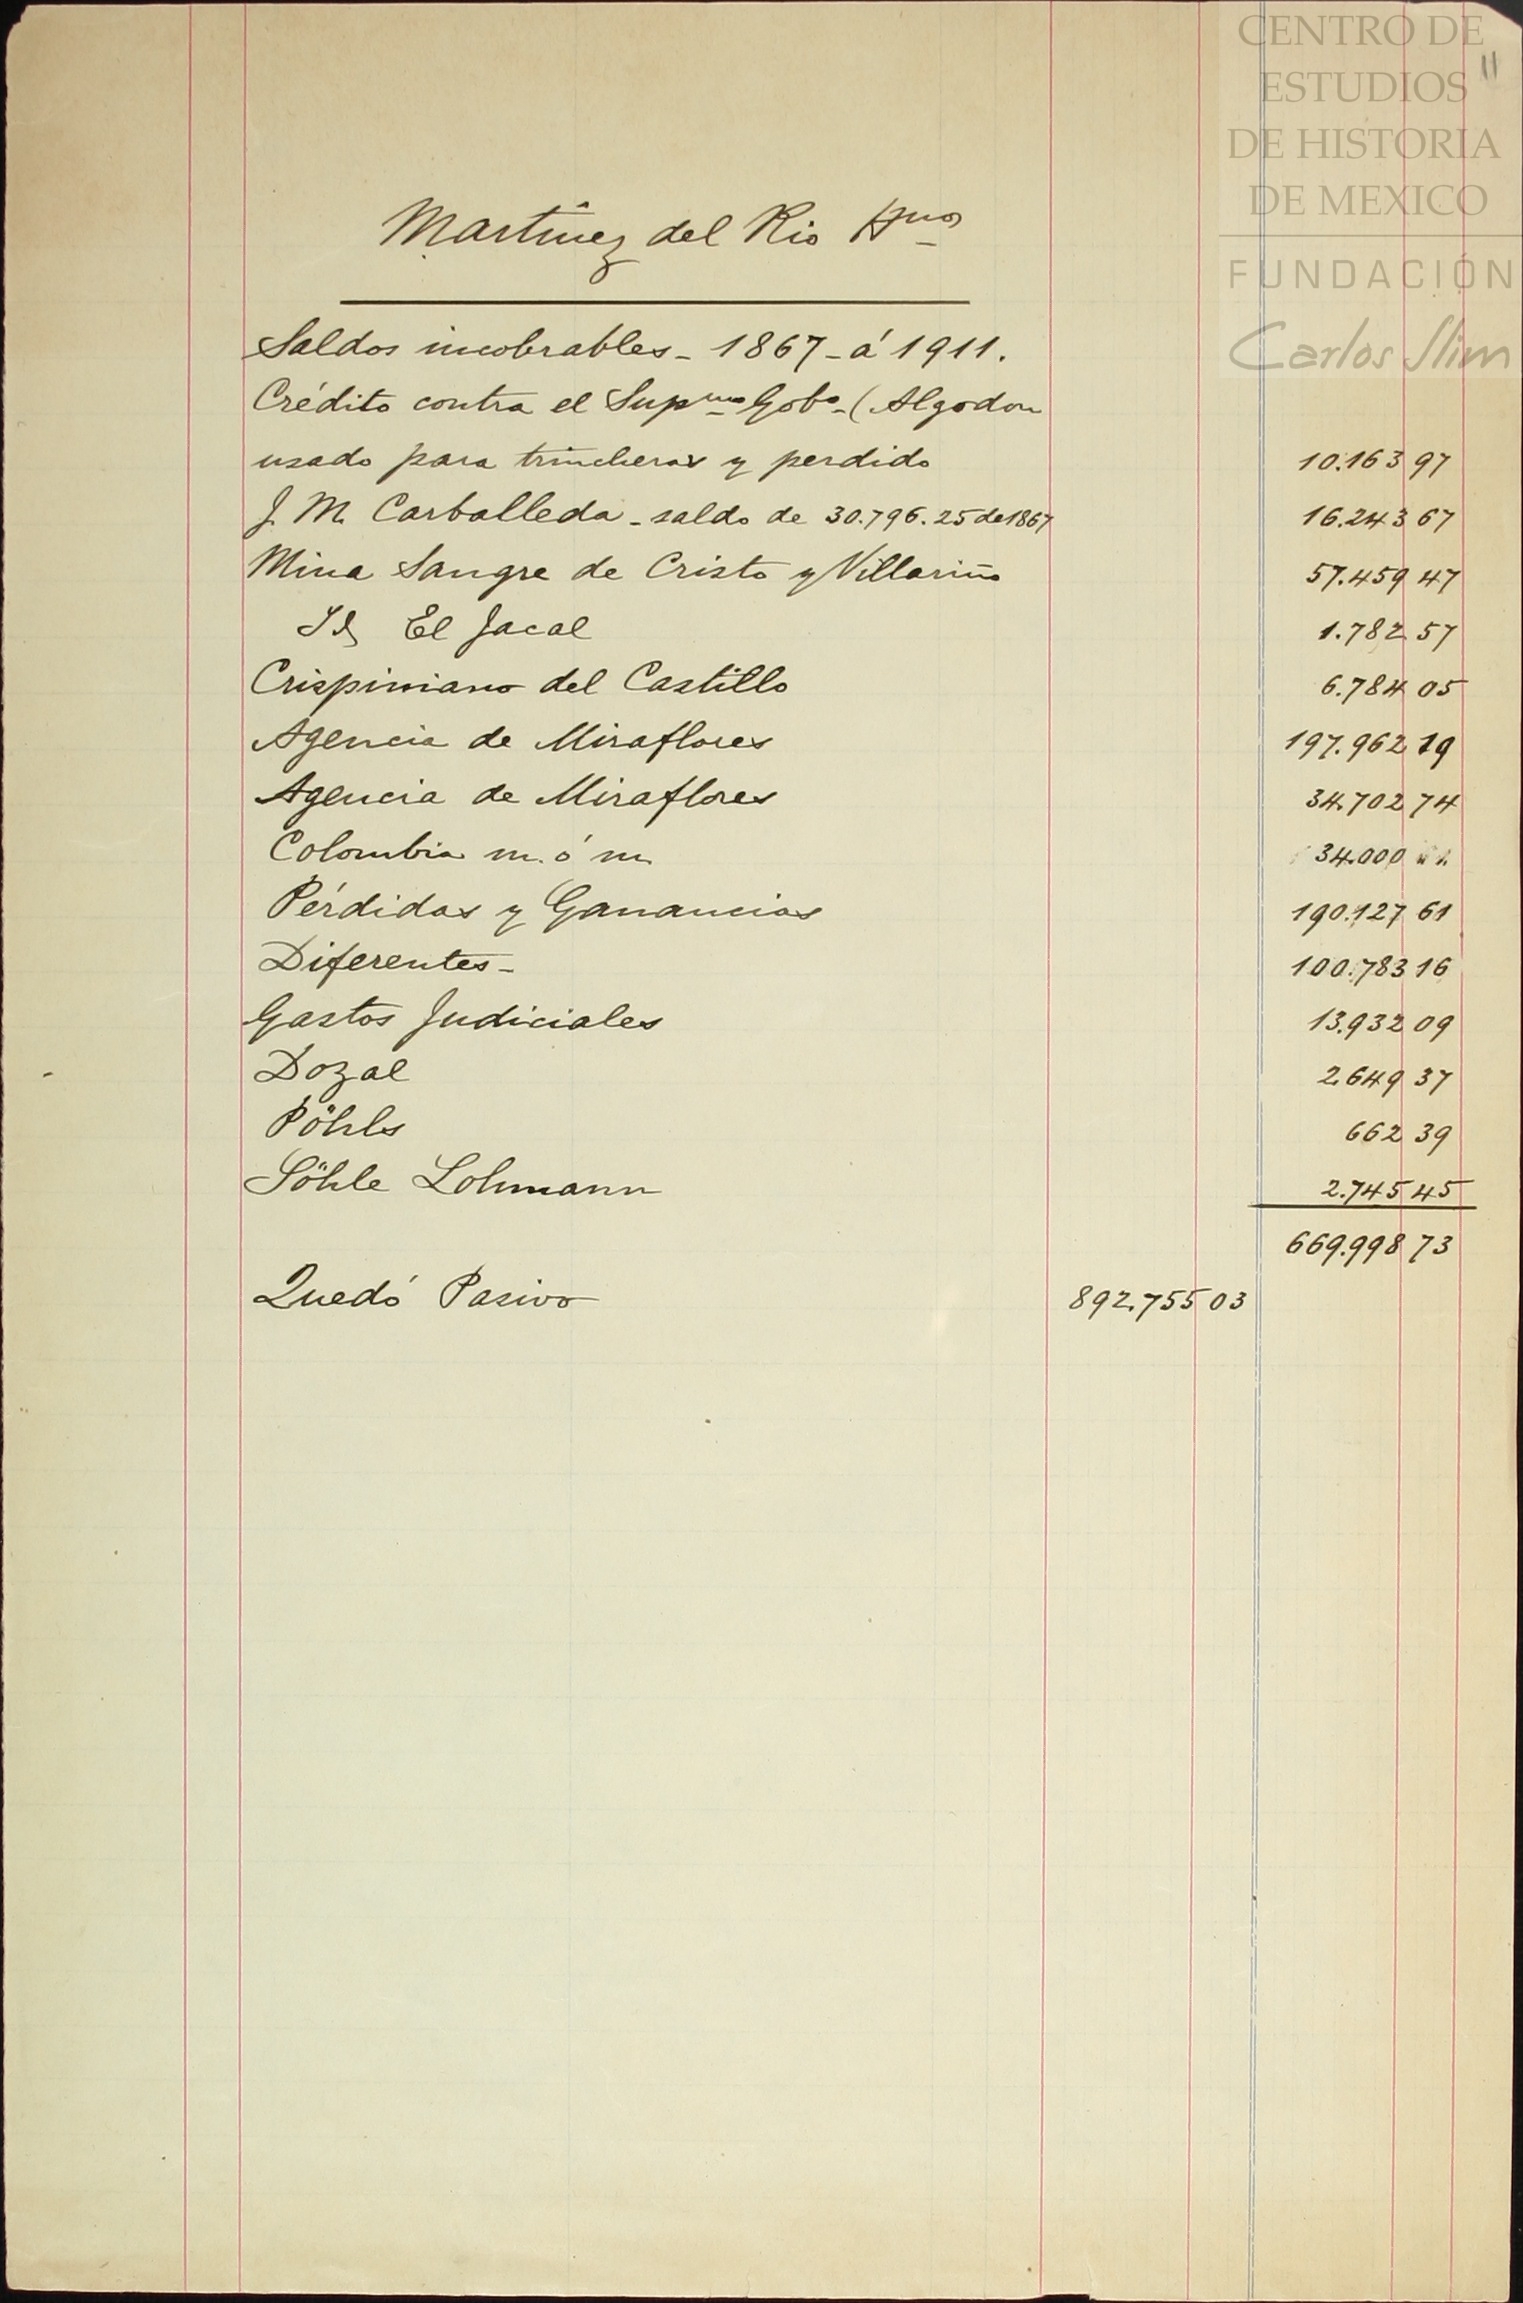 CENTRO DE
ESTUDIOS
DE HISTORIA
DE MEXICO
FUNDACIÓN
Carlos Slim
11
Martinez del Rio Hnos
Saldos incobrables - 1867 - á 1911.
Crédito contra el Supmo Gobo - (Algodon
usado para trincheras y perdido 10.163 97
J. M. Carballeda - saldo de 30.796.25 de 1867 16.243 67
Mina Sangre de Cristo y Villariño 57.459 47
Id El Jacal 1.782 57
Crispiniano del Castillo 6.784 05
Agencia de Miraflores 197.962 19
Agencia de Miraflores 34.702 74
Colombia m. ó m. 34.000
Pérdidas y Ganancias 190.127 61
Diferentes - 100.783 16
Gastos Judiciales 13.932 09
Dozal 2.649 37
Pöhls 662 39
Söhle Lohmann 2.745 45
669.998 73
Quedó Pasivo 892.755 03